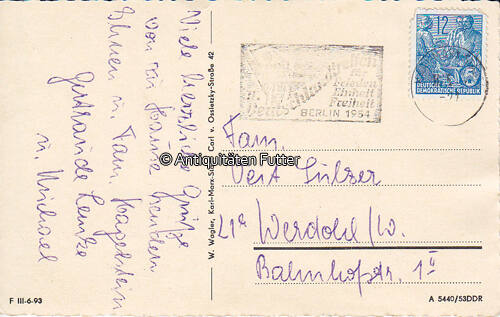 Viele herzliche Grüße
von zu Hause senden
Ihnen u. Fam.
Gertraude Lentze
u. Michael
W. Wagler, Karl-Marx-Stadt, Carl v. Ossietzky-Straße 42
F III-6-93
12
DEUTSCHE
DEMOKRATISCHE REPUBLIK
für
Frieden
Einheit
Freiheit
BERLIN 1954
Fam.
Veit Sülzer
21a Werdohl/W.
Bahnhofstr. 1
A 5440/53DDR
© Antiquitäten Futter